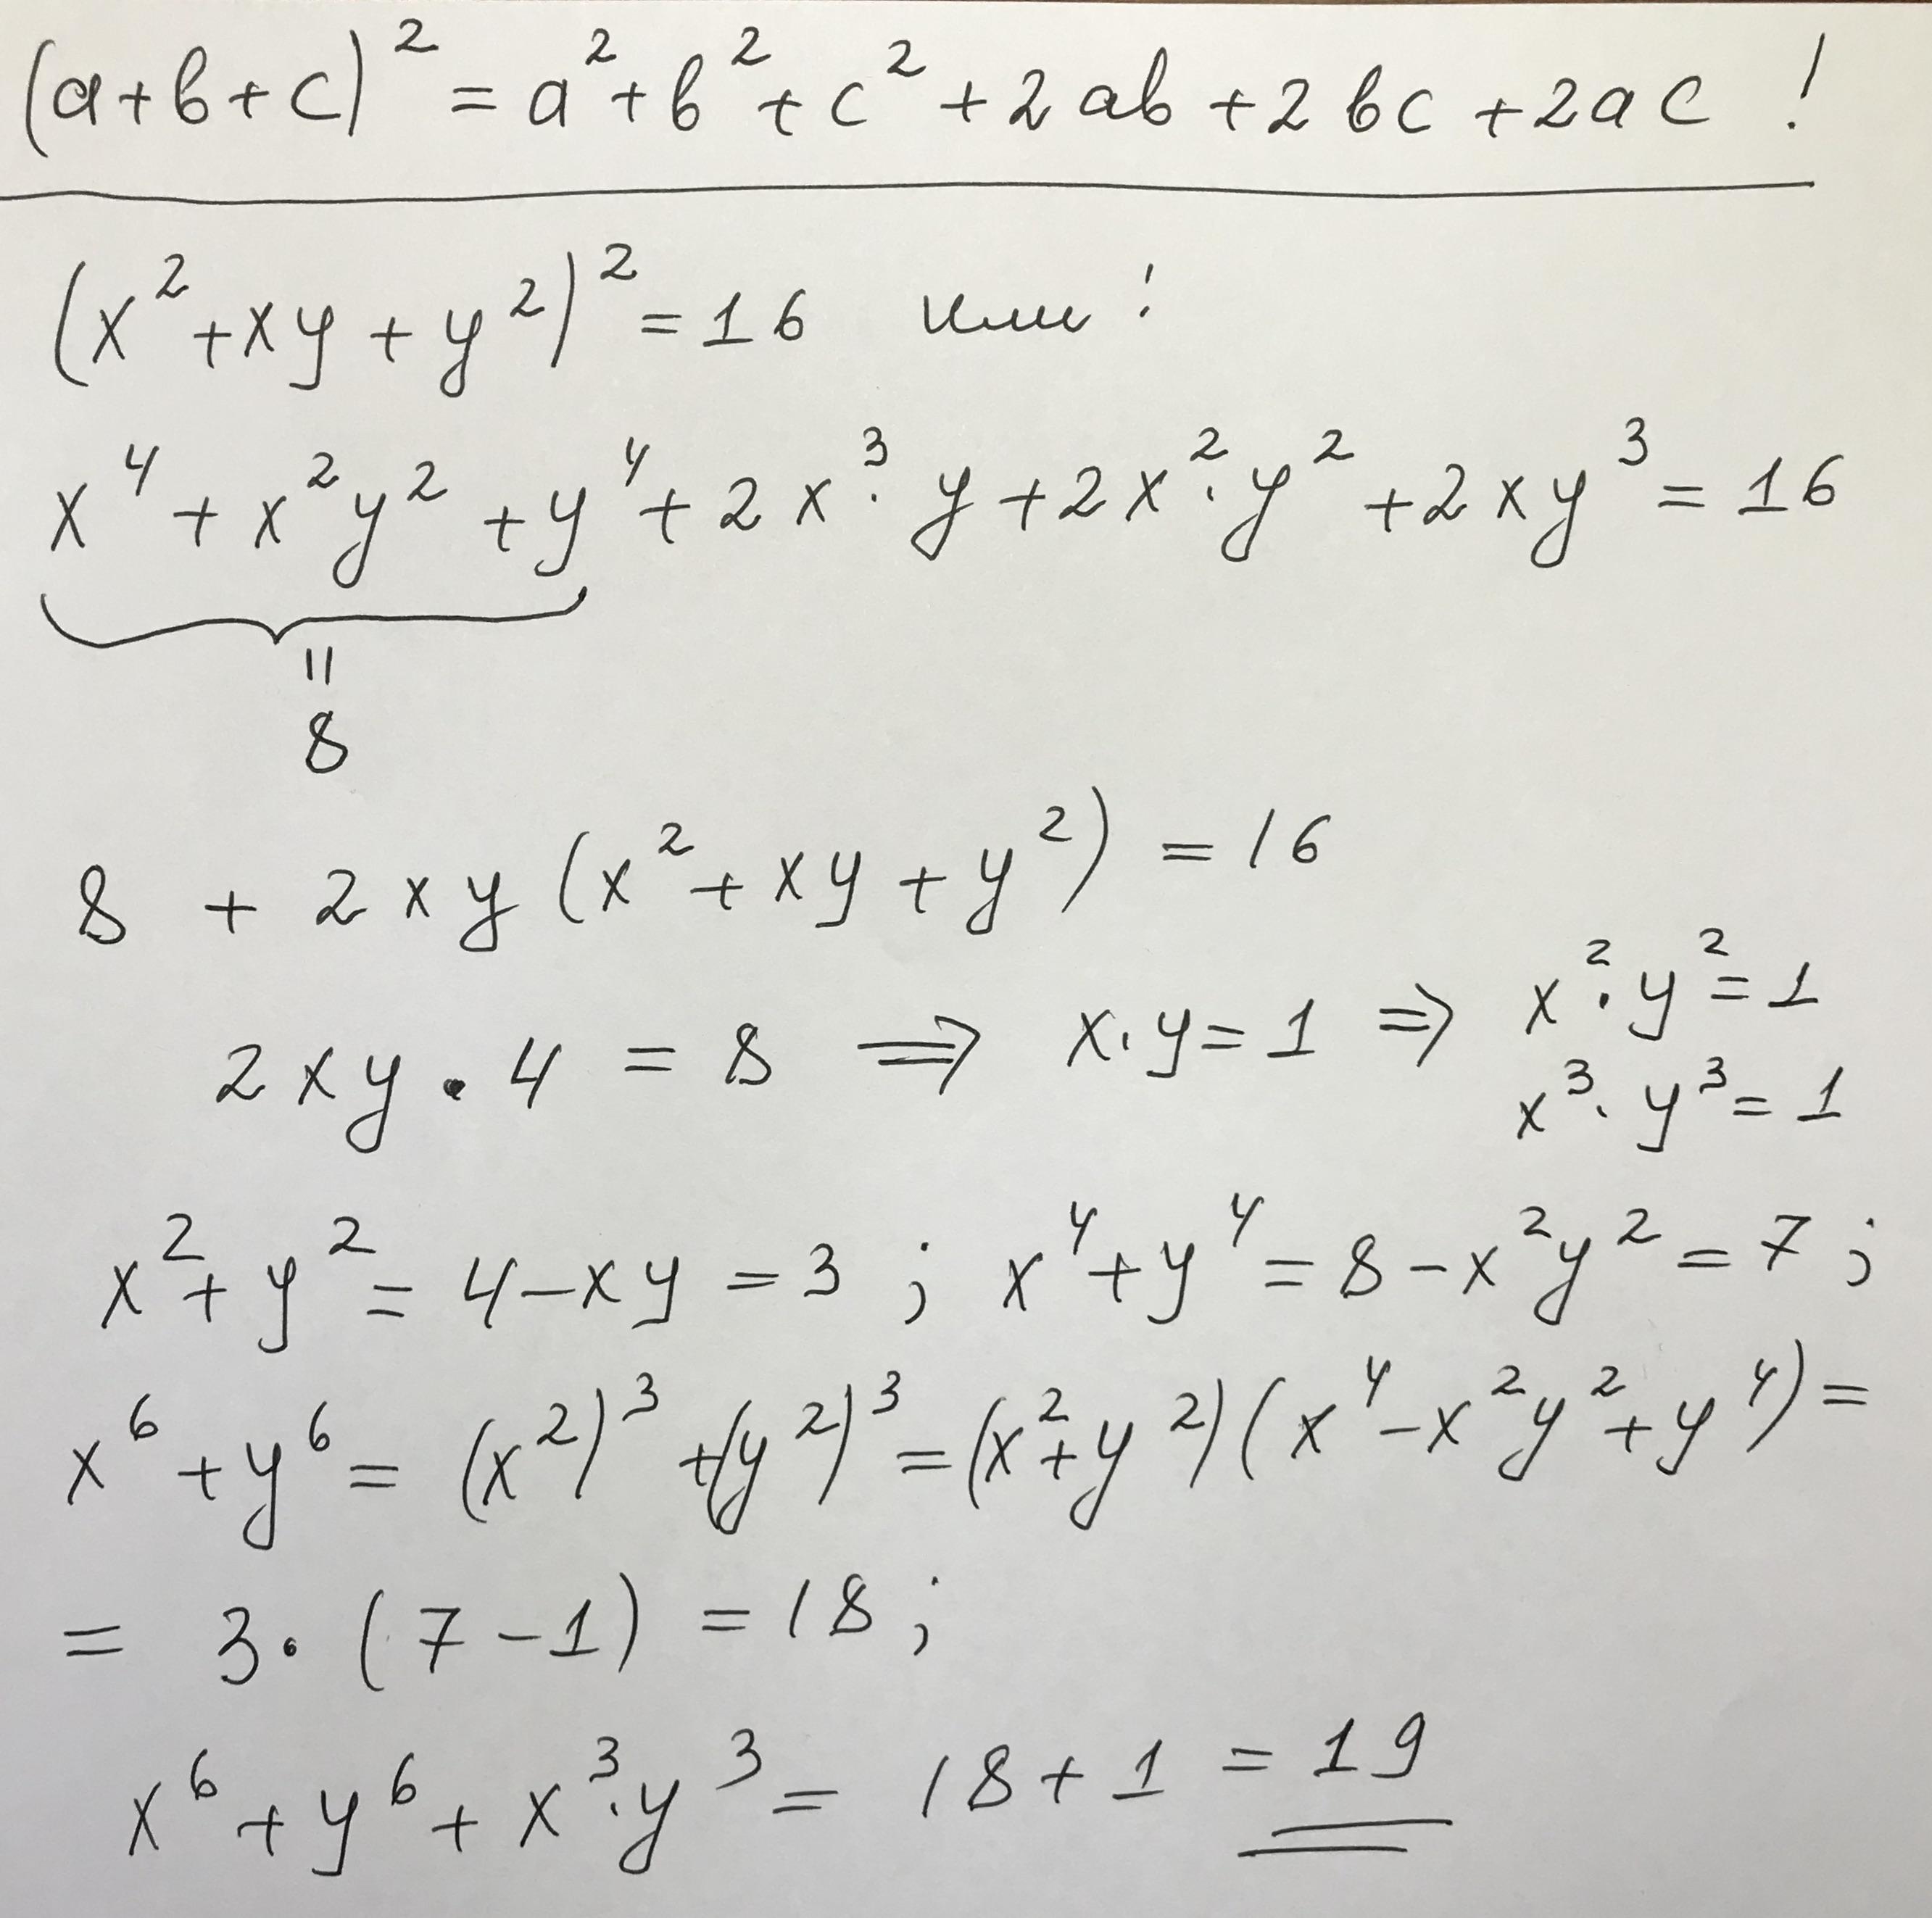 (a+b+c)² = a²+b²+c²+2ab+2bc+2ac !
(x²+xy+y²)² = 16 или :
x⁴+x²y²+y⁴+2x³·y+2x²·y²+2xy³=16
=
8
8 + 2xy(x²+xy+y²) = 16
2xy·4 = 8 ⇒ x·y=1 ⇒ x²·y²=1
x³·y³=1
x²+y²=4-xy=3 ; x⁴+y⁴=8-x²y²=7 ;
x⁶+y⁶=(x²)³+(y²)³=(x²+y²)(x⁴-x²y²+y⁴)=
= 3·(7-1) = 18 ;
x⁶+y⁶+x³·y³= 18+1 = 19